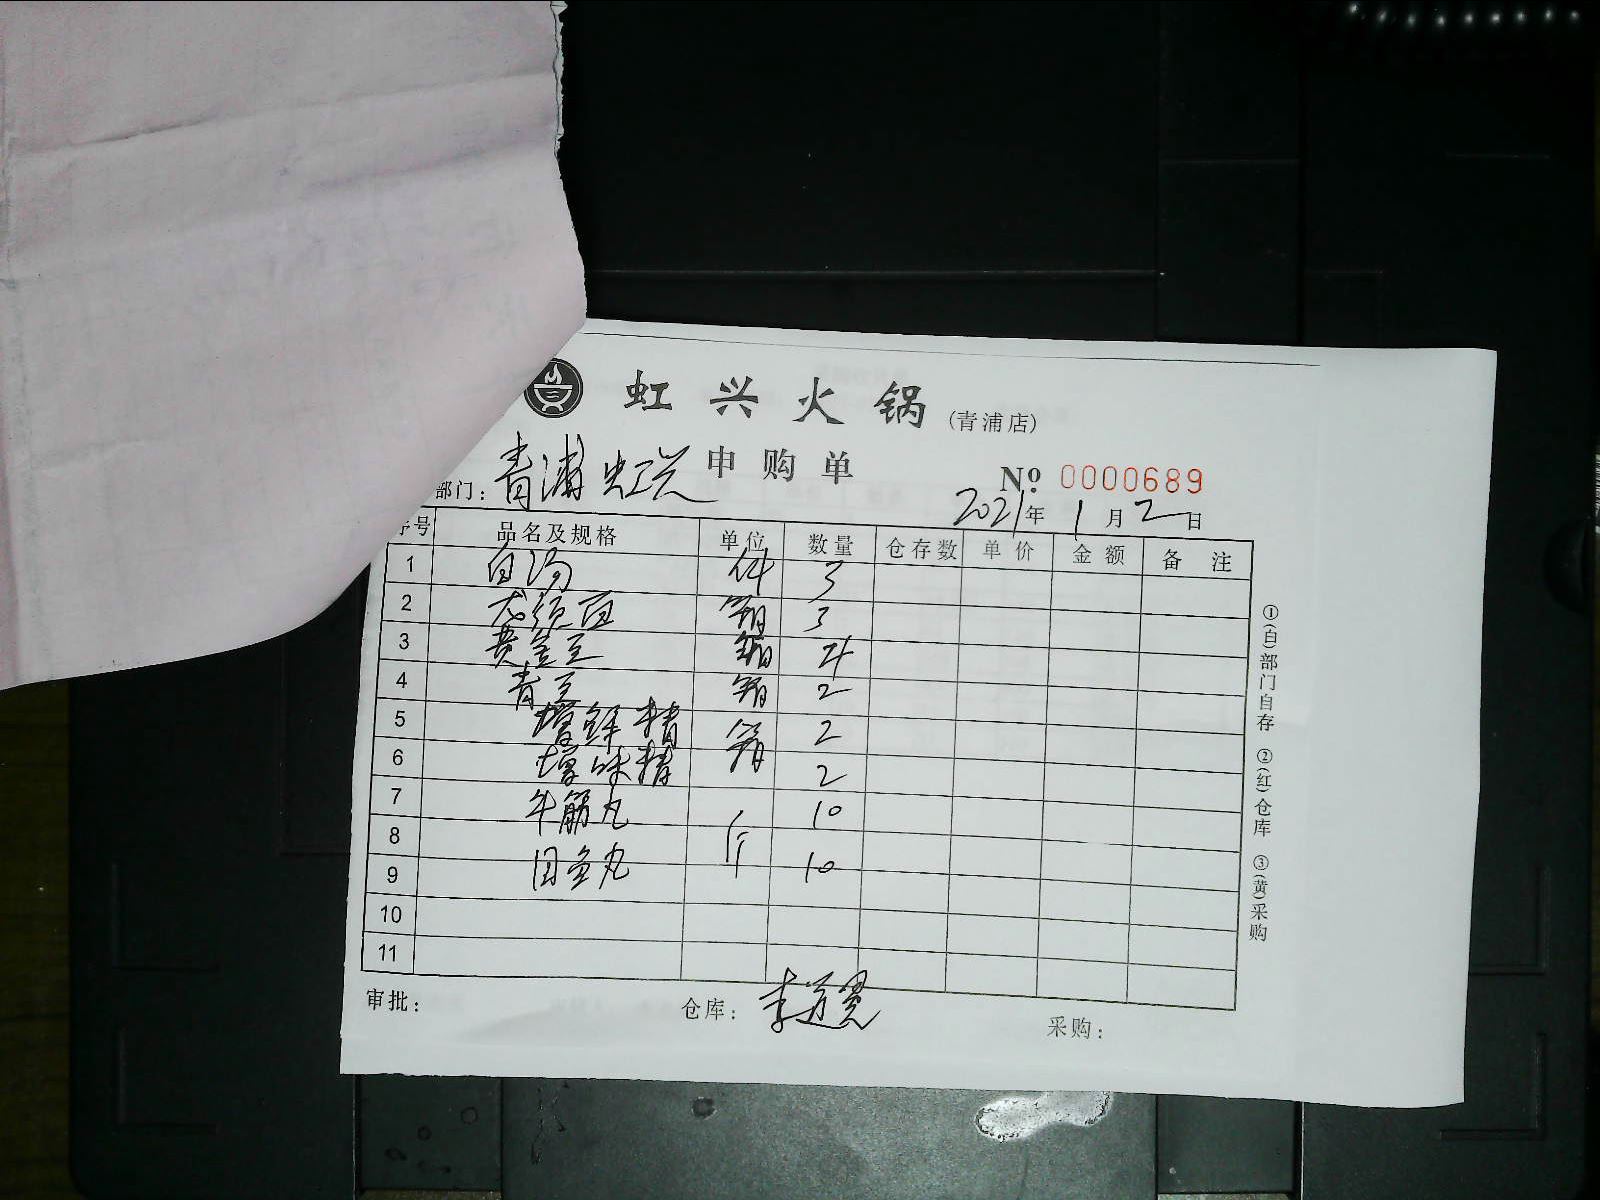 虹兴火锅 (青浦店)
申购单
部门: 青浦虹兴
No: 0000689
2021年 1月 2日
序号 品名及规格 单位 数量 仓存数 单价 金额 备注
1 白汤 件 3
2 龙须面 箱 3
3 黄金豆 箱 4
4 青豆 箱 2
5 增鲜精 箱 2
6 增味精 2
7 牛筋丸 10
8 斤
9 目鱼丸 10
10
11
①(白)部门自存 ②(红)仓库 ③(黄)采购
审批: 仓库: 李道 采购: